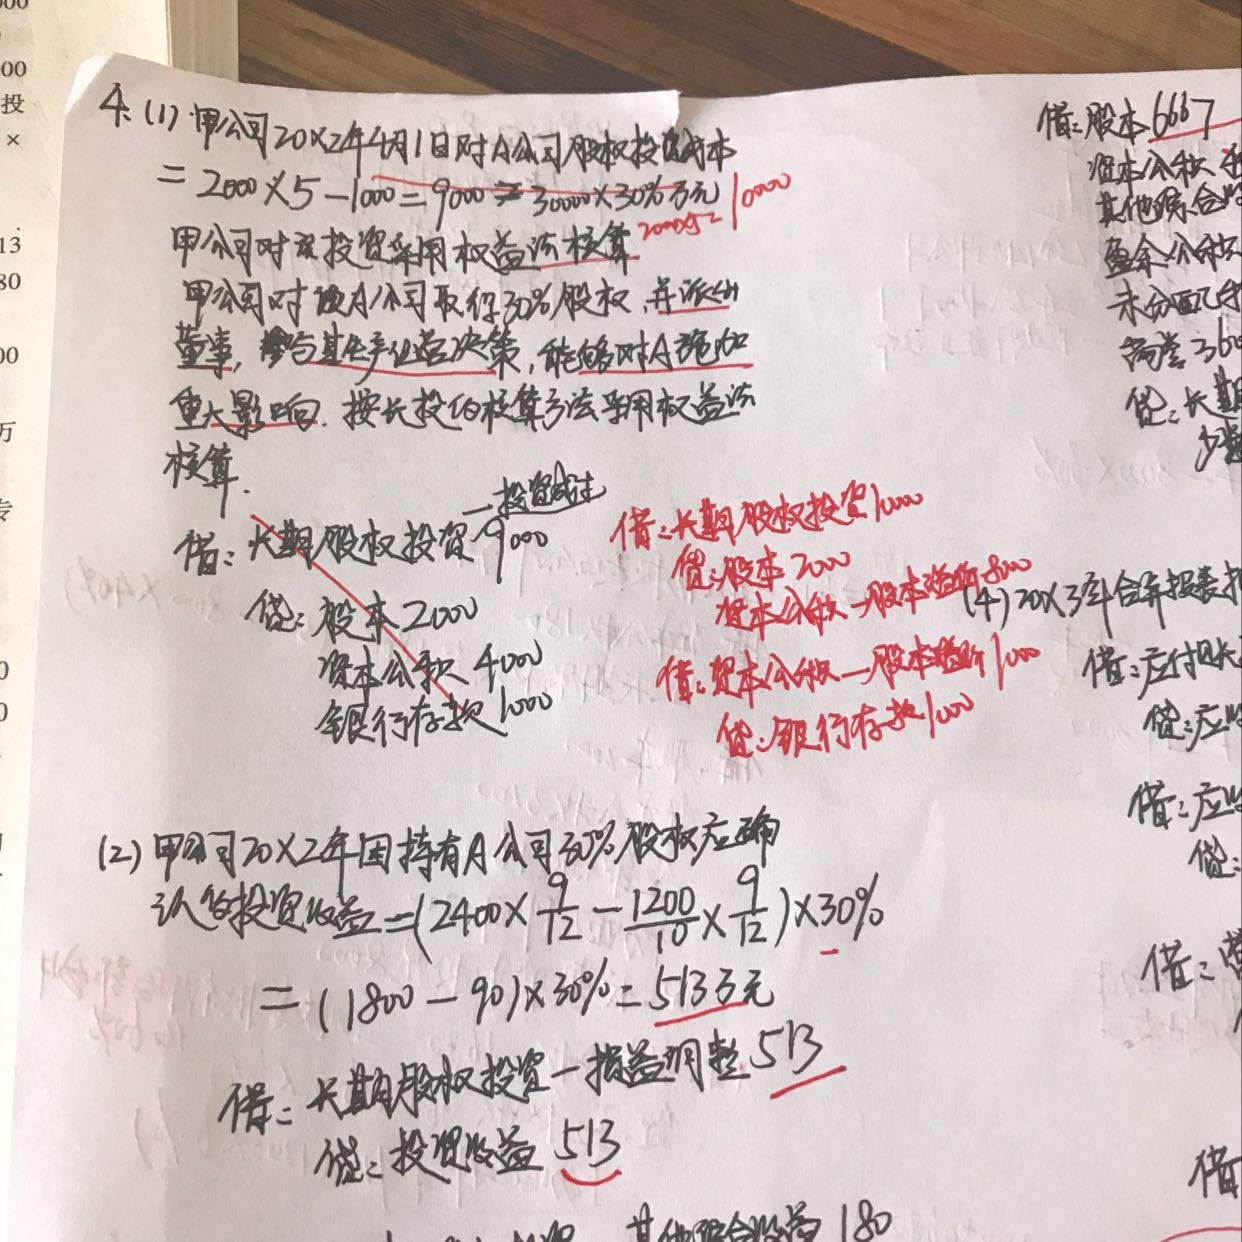 00
投
×
13
80
00
万
专
4、(1) 甲公司20×2年4月1日对A公司股权投资成本
= 2000×5-1000=9000 = 30000×30%万元
2000×5=10000
甲公司对该投资采用权益法核算
甲公司对A公司取得30%股权,并派出
董事,参与其生产经营决策,能够对A施加
重大影响.按长投的核算方法采用权益法
核算.
借:长期股权投资—投资成本 9000
贷:股本2000
资本公积 4000
银行存款1000
借:长期股权投资10000
贷:股本2000
资本公积—股本溢价8000
借:资本公积—股本溢价1000
贷:银行存款1000
(2)甲公司20×2年因持有A公司30%股权应确
认的投资收益=(2400×9/12-1200/10×9/12)×30%
=(1800-90)×30%=513万元
借:长期股权投资—损益调整513
贷:投资收益 513
其他综合收益 180
借:股本6667
资本公积
其他综合收
盈余公积
未分配
商誉360
贷:长期
少数
(4)20×3年合并报表
借:应付账
贷:应收
借:应收
贷:
借:营
借